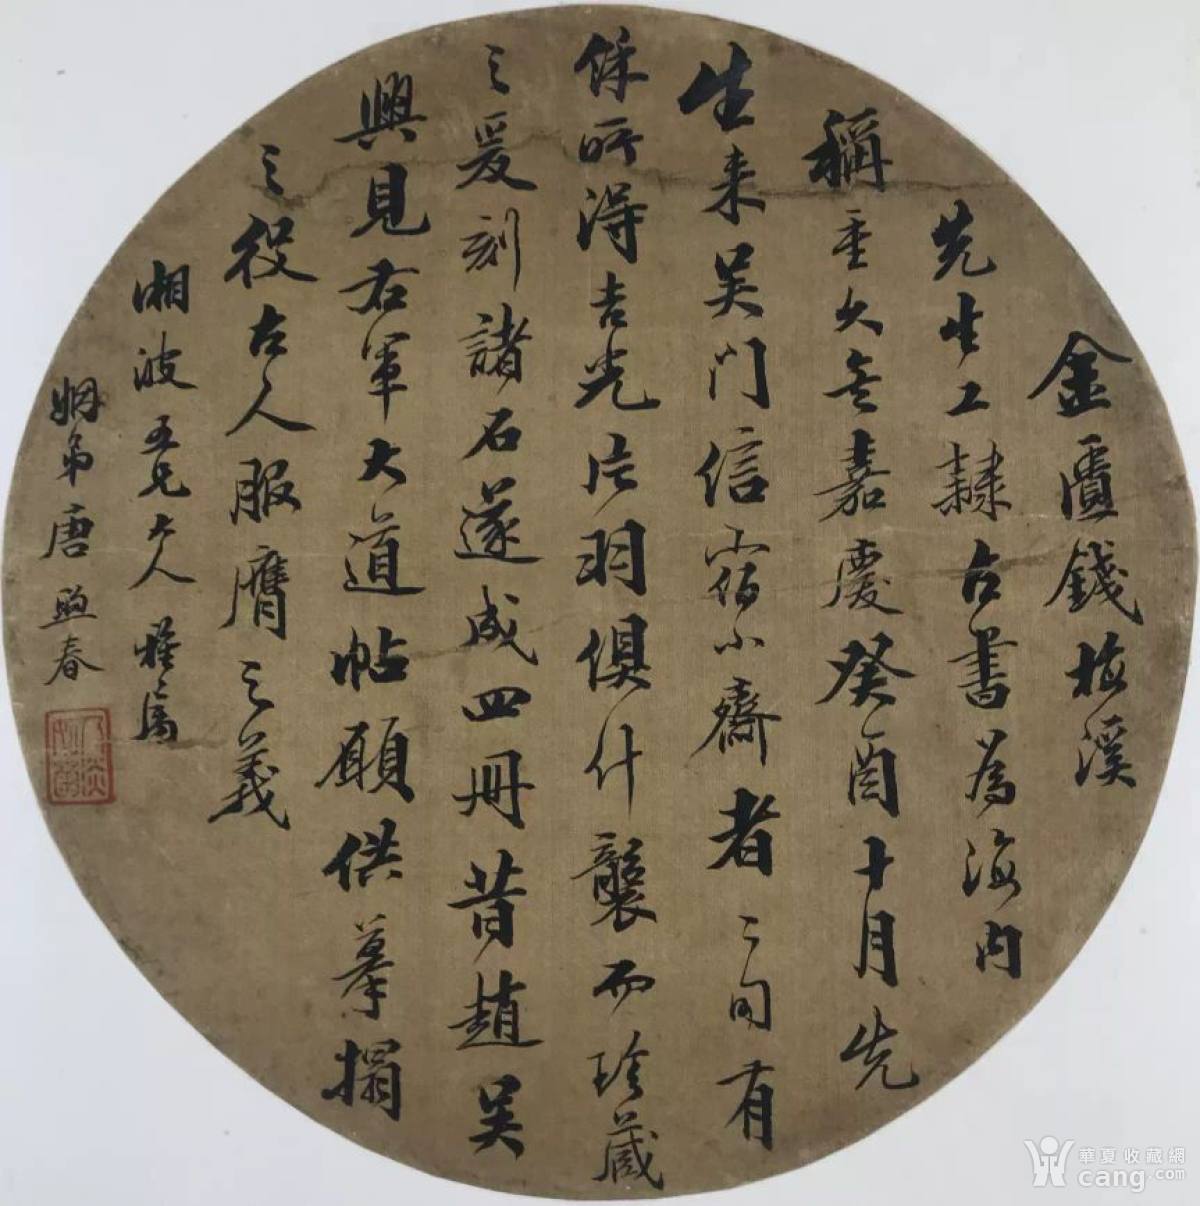 金匱錢梅溪
先生工隸古書為海内
稱重久矣嘉慶癸酉十月先
生来吴門信宿小齋者二旬有
餘所得吉光片羽俱什襲而珍藏
之爰刻諸石遂成四冊昔趙吴
興見右軍大道帖願供摹搨
之役古人服膺之義
湘波五兄大人雅屬
姻弟唐照春
華夏收藏網
cang.com